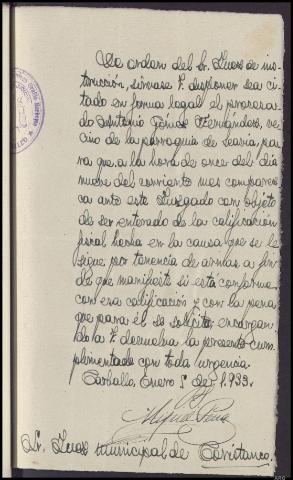 De orden del Sr. Juez de ins-
trucción, sírvase V. disponer sea ci-
tado en forma legal el procesa-
do Antonio Gómez Fernández, ve-
cino de la parroquia de
ra que a la hora de once del día
nueve del corriente mes comparez-
ca ante este Juzgado con objeto
de ser enterado de la calificación
fiscal hecha en la causa que se le
sigue por tenencia de armas a fin
de que manifieste si está conforme
con esa calificación y con la pena
que para él se solicita, encargan-
do la V. devuelva la presente cum-
plimentada con toda urgencia.
Carballo, Enero 5 de 1.933.
Miguel
Sr. Juez Municipal de Coristanco.